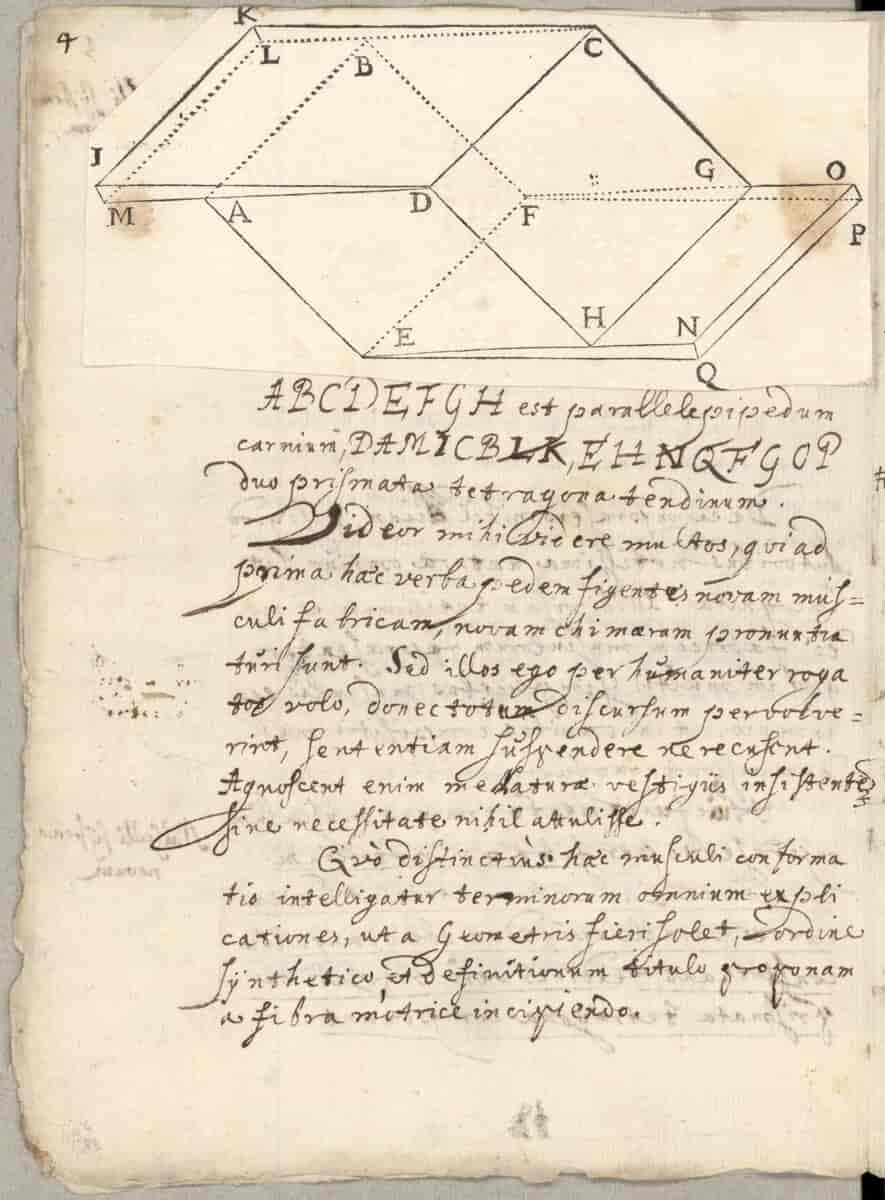 4
K
L
B
C
I
M
A
D
F
G
O
P
E
H
N
Q
ABCDEFGH est parallelepipedum
carnium, DAMICBLK, EHNQFGOP
duo prismata tetragona tendinum.
Videor mihi videre multos, qui ad
prima hæc verba pedem figentes novam mus=
culi fabricam, novam chimæram pronuntia
turi sunt. Sed illos ego perhumaniter roga
tos volo, donec totum discursum pervolve=
rint, sententiam suspendere ne recusent.
Agnoscent enim me naturæ vestigiis insistentem
sine necessitate nihil attulisse.
Quò distinctiùs hæc musculi conforma
tio intelligatur terminorum omnium expli
cationes, ut a Geometris fieri solet, ordine
synthetico, et definitionum titulo proponam
a fibra motrice incipiendo.